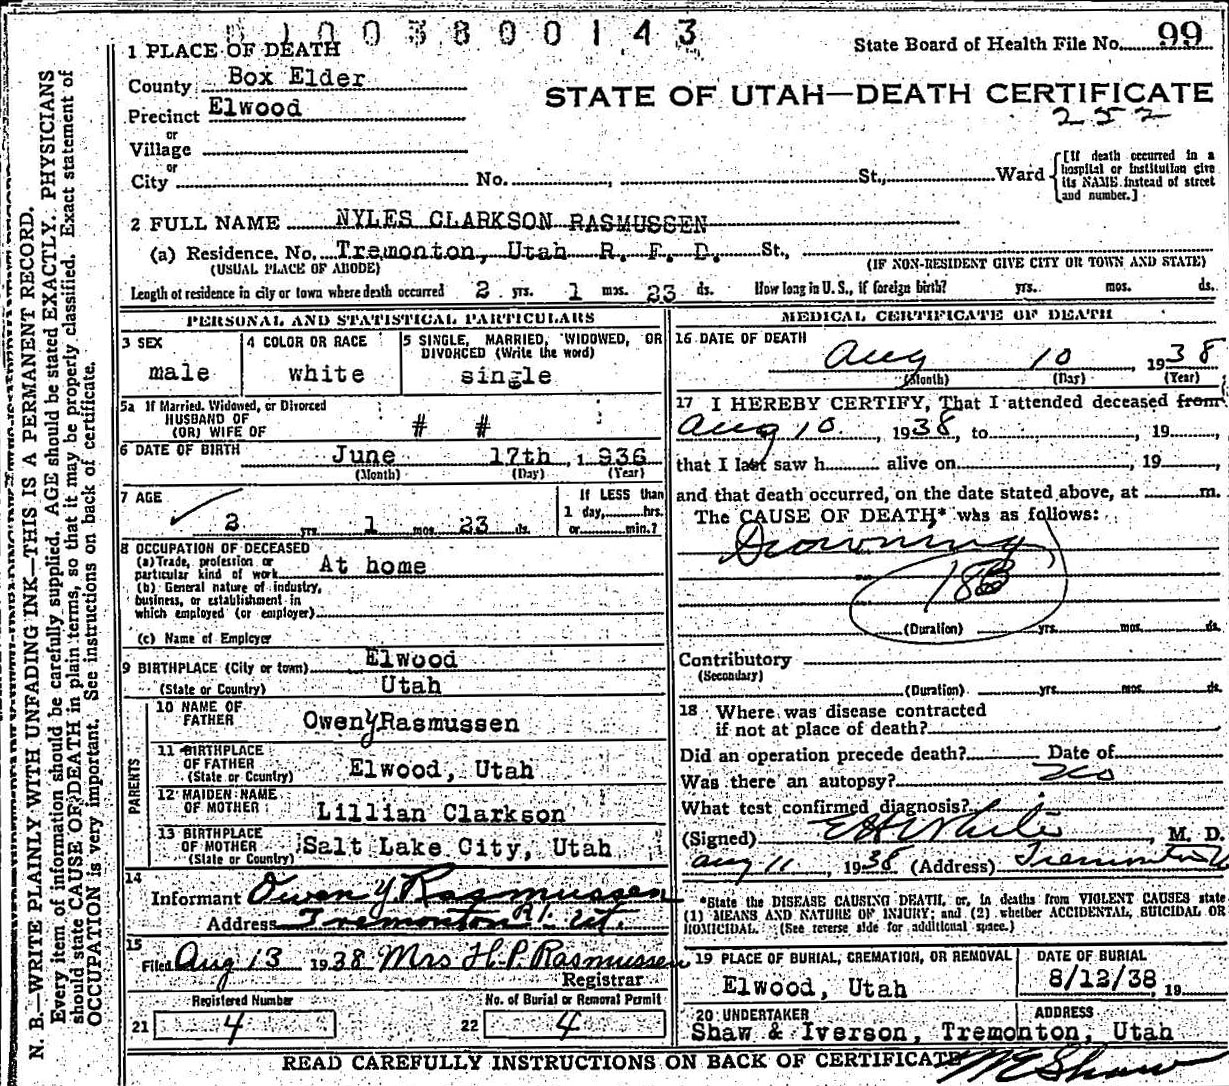 D 1 0 0 3 8 0 0 1 4 3
State Board of Health File No. 99
1 PLACE OF DEATH
County Box Elder
STATE OF UTAH—DEATH CERTIFICATE
Precinct Elwood
252
or
Village
or
City No. , St., Ward
[If death occurred in a
hospital or institution give
its NAME instead of street
and number.]
2 FULL NAME NYLES CLARKSON RASMUSSEN
(a) Residence. No. Tremonton, Utah R. F. D. St.,
(USUAL PLACE OF ABODE) (IF NON-RESIDENT GIVE CITY OR TOWN AND STATE)
Length of residence in city or town where death occurred 2 yrs. 1 mos. 23 ds. How long in U. S., if foreign birth? yrs. mos. ds.
PERSONAL AND STATISTICAL PARTICULARS
3 SEX
male
4 COLOR OR RACE
white
5 SINGLE, MARRIED, WIDOWED, OR
DIVORCED (Write the word)
single
5a If Married, Widowed, or Divorced
HUSBAND OF
(OR) WIFE OF # #
6 DATE OF BIRTH June 17th, 1936
(Month) (Day) (Year)
7 AGE
2 yrs. 1 mos. 23 ds.
If LESS than
1 day, hrs.
or min.?
8 OCCUPATION OF DECEASED
(a) Trade, profession or
particular kind of work At home
(b) General nature of industry,
business, or establishment in
which employed (or employer)
(c) Name of Employer
9 BIRTHPLACE (City or town) Elwood
(State or Country) Utah
PARENTS
10 NAME OF
FATHER Owen Y Rasmussen
11 BIRTHPLACE
OF FATHER
(State or Country) Elwood, Utah
12 MAIDEN NAME
OF MOTHER Lillian Clarkson
13 BIRTHPLACE
OF MOTHER
(State or Country) Salt Lake City, Utah
14
Informant Owen Y. Rasmussen
Address Tremonton R1. Ut.
15
Filed Aug 13 1938 Mrs H. P. Rasmussen
Registrar
Registered Number
21 4
No. of Burial or Removal Permit
22 4
MEDICAL CERTIFICATE OF DEATH
16 DATE OF DEATH
Aug 10 1938
(Month) (Day) (Year)
17 I HEREBY CERTIFY, That I attended deceased from
Aug 10, 1938, to , 19 ,
that I last saw h alive on , 19 ,
and that death occurred, on the date stated above, at m.
The CAUSE OF DEATH* was as follows:
Drowning
(Duration) yrs. mos. ds.
Contributory
(Secondary)
(Duration) yrs. mos. ds.
18 Where was disease contracted
if not at place of death?
Did an operation precede death? Date of
Was there an autopsy? No
What test confirmed diagnosis?
(Signed) E H White, M. D.
Aug 11, 1938 (Address) Tremonton U
*State the DISEASE CAUSING DEATH, or, in deaths from VIOLENT CAUSES state
(1) MEANS AND NATURE OF INJURY; and (2) whether ACCIDENTAL, SUICIDAL OR
HOMICIDAL. (See reverse side for additional space.)
19 PLACE OF BURIAL, CREMATION, OR REMOVAL
Elwood, Utah
DATE OF BURIAL
8/12/38, 19
20 UNDERTAKER ADDRESS
Shaw & Iverson, Tremonton, Utah
READ CAREFULLY INSTRUCTIONS ON BACK OF CERTIFICATE
M E Shaw
N. B.—WRITE PLAINLY WITH UNFADING INK—THIS IS A PERMANENT RECORD.
Every item of information should be carefully supplied. AGE should be stated EXACTLY. PHYSICIANS
should state CAUSE OF DEATH in plain terms, so that it may be properly classified. Exact statement of
OCCUPATION is very important. See instructions on back of certificate.